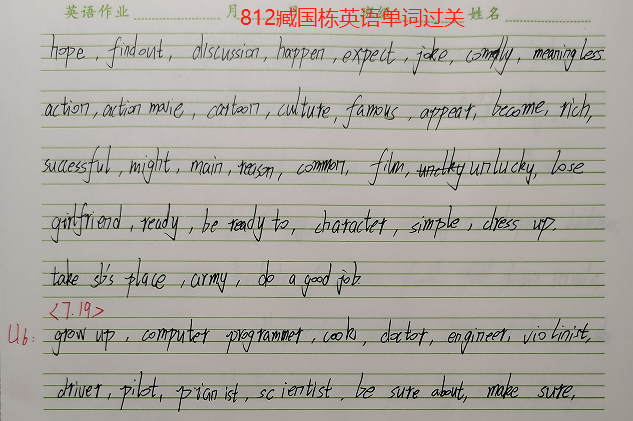 英语作业 月 812臧国栋英语单词过关 姓名
hope, findout, discussion, happen, expect, joke, comdly, meaningless
action, action movie, cartoon, culture, famous, appear, become, rich,
successful, might, main, reason, common, film, unlucky, lose
girlfriend, ready, be ready to, character, simple, dress up.
take sb's place, army, do a good job.
<7.19>
U6: grow up, computer programmer, cook, doctor, engineer, violinist,
driver, pilot, pianist, scientist, be sure about, make sure,